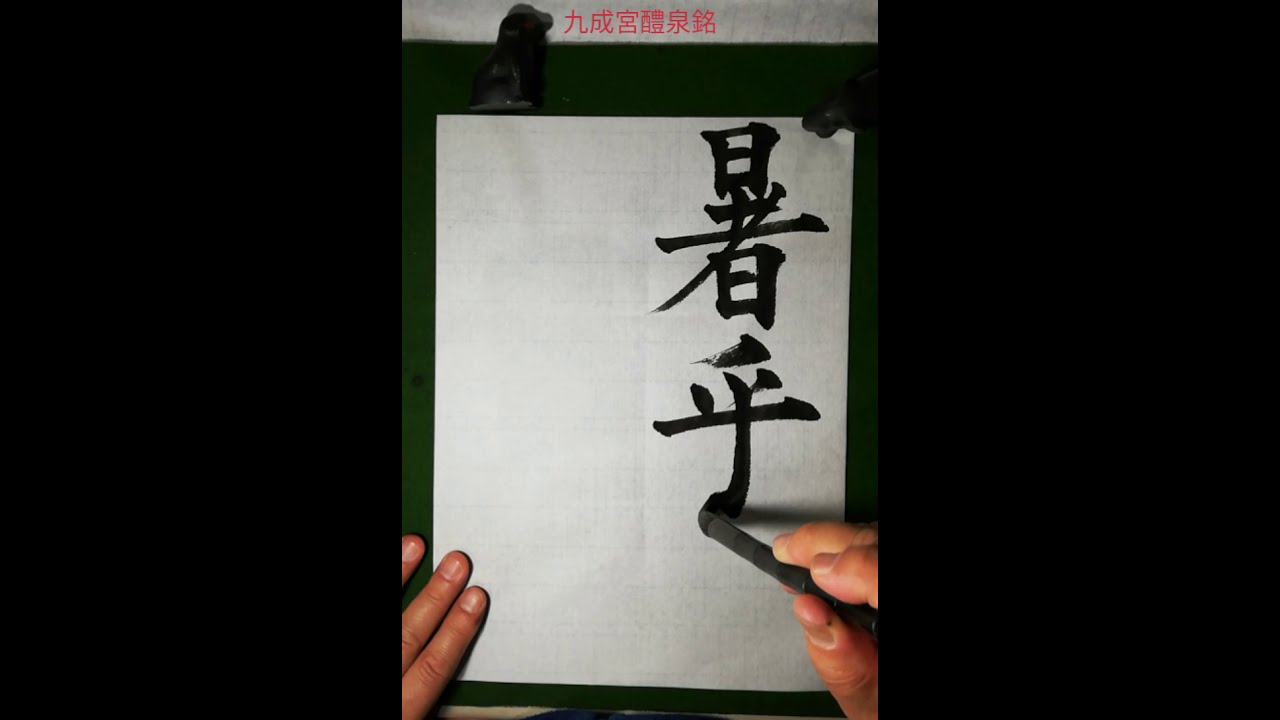 九成宮醴泉銘
暑乎